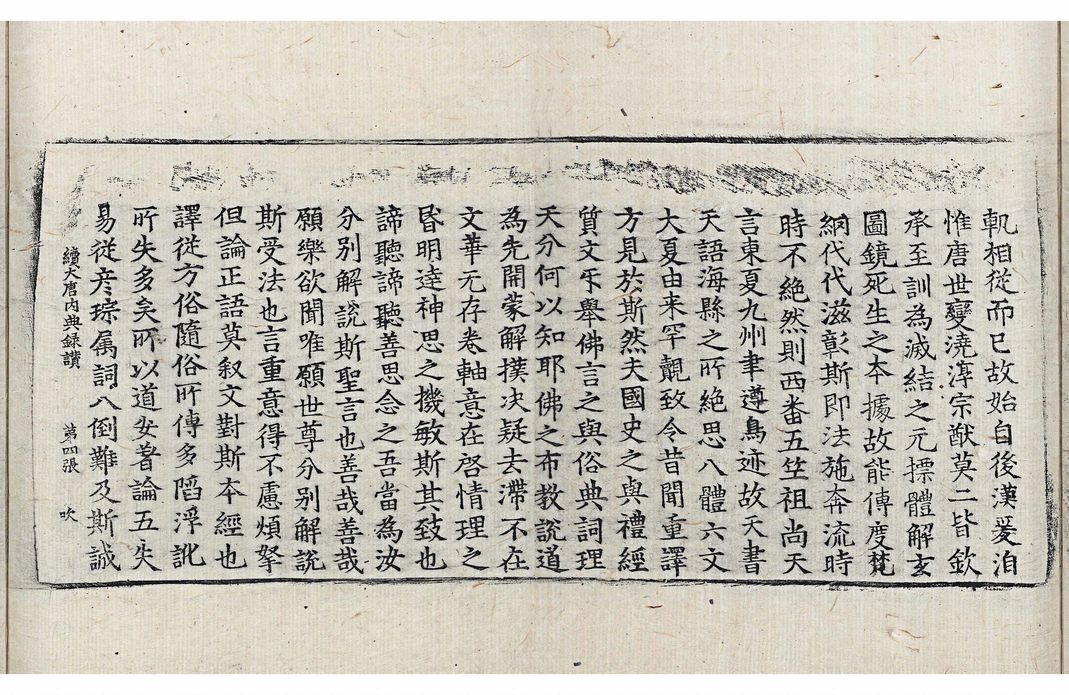 軌相從而已故始自後漢爰洎
惟唐世變澆淳宗猷莫二皆欽
承至訓為滅結之元摽體解玄
圖鏡死生之本據故能傳度梵
網代代滋彰斯即法施奔流時
時不絶然則西番五竺祖尚天
言東夏九州聿遵鳥迹故天書
天語海縣之所絶思八體六文
大夏由来罕覿致令昔聞重譯
方見於斯然夫國史之與禮經
質文乎舉佛言之與俗典詞理
天分何以知耶佛之布教說道
為先開蒙解撲决疑去滯不在
文華元存卷軸意在啓情理之
昏明達神思之機敏斯其致也
諦聽諦聽善思念之吾當為汝
分別解說斯聖言也善哉善哉
願樂欲聞唯願世尊分別解說
斯受法也言重意得不慮煩拏
但論正語莫叙文對斯本經也
譯從方俗隨俗所傳多陷浮訛
所失多矣所以道安著論五失
易從彦琮属詞八倒難及斯誠
續大唐内典録讃 第四張 吹